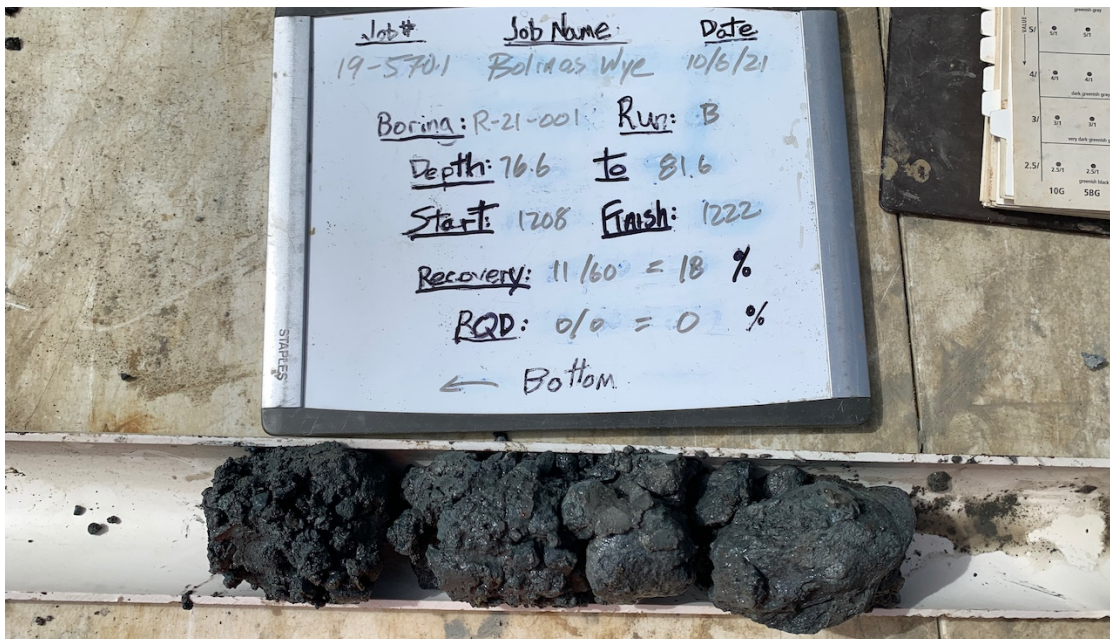 Job# Job Name Date
19-570.1 Bolinas Wye 10/6/21
Boring: R-21-001 Run: B
Depth: 76.6 to 81.6
Start: 1208 Finish: 1222
Recovery: 11/60 = 18 %
RQD: 0/0 = 0 %
← Bottom
STAPLES
greenish gray
VALUE
5/ 5/1 5/1
4/ 4/1 4/1
dark greenish gray
3/ 3/1 3/1
very dark greenish
2.5/ 2.5/1 2.5/1
greenish black
10G 5BG